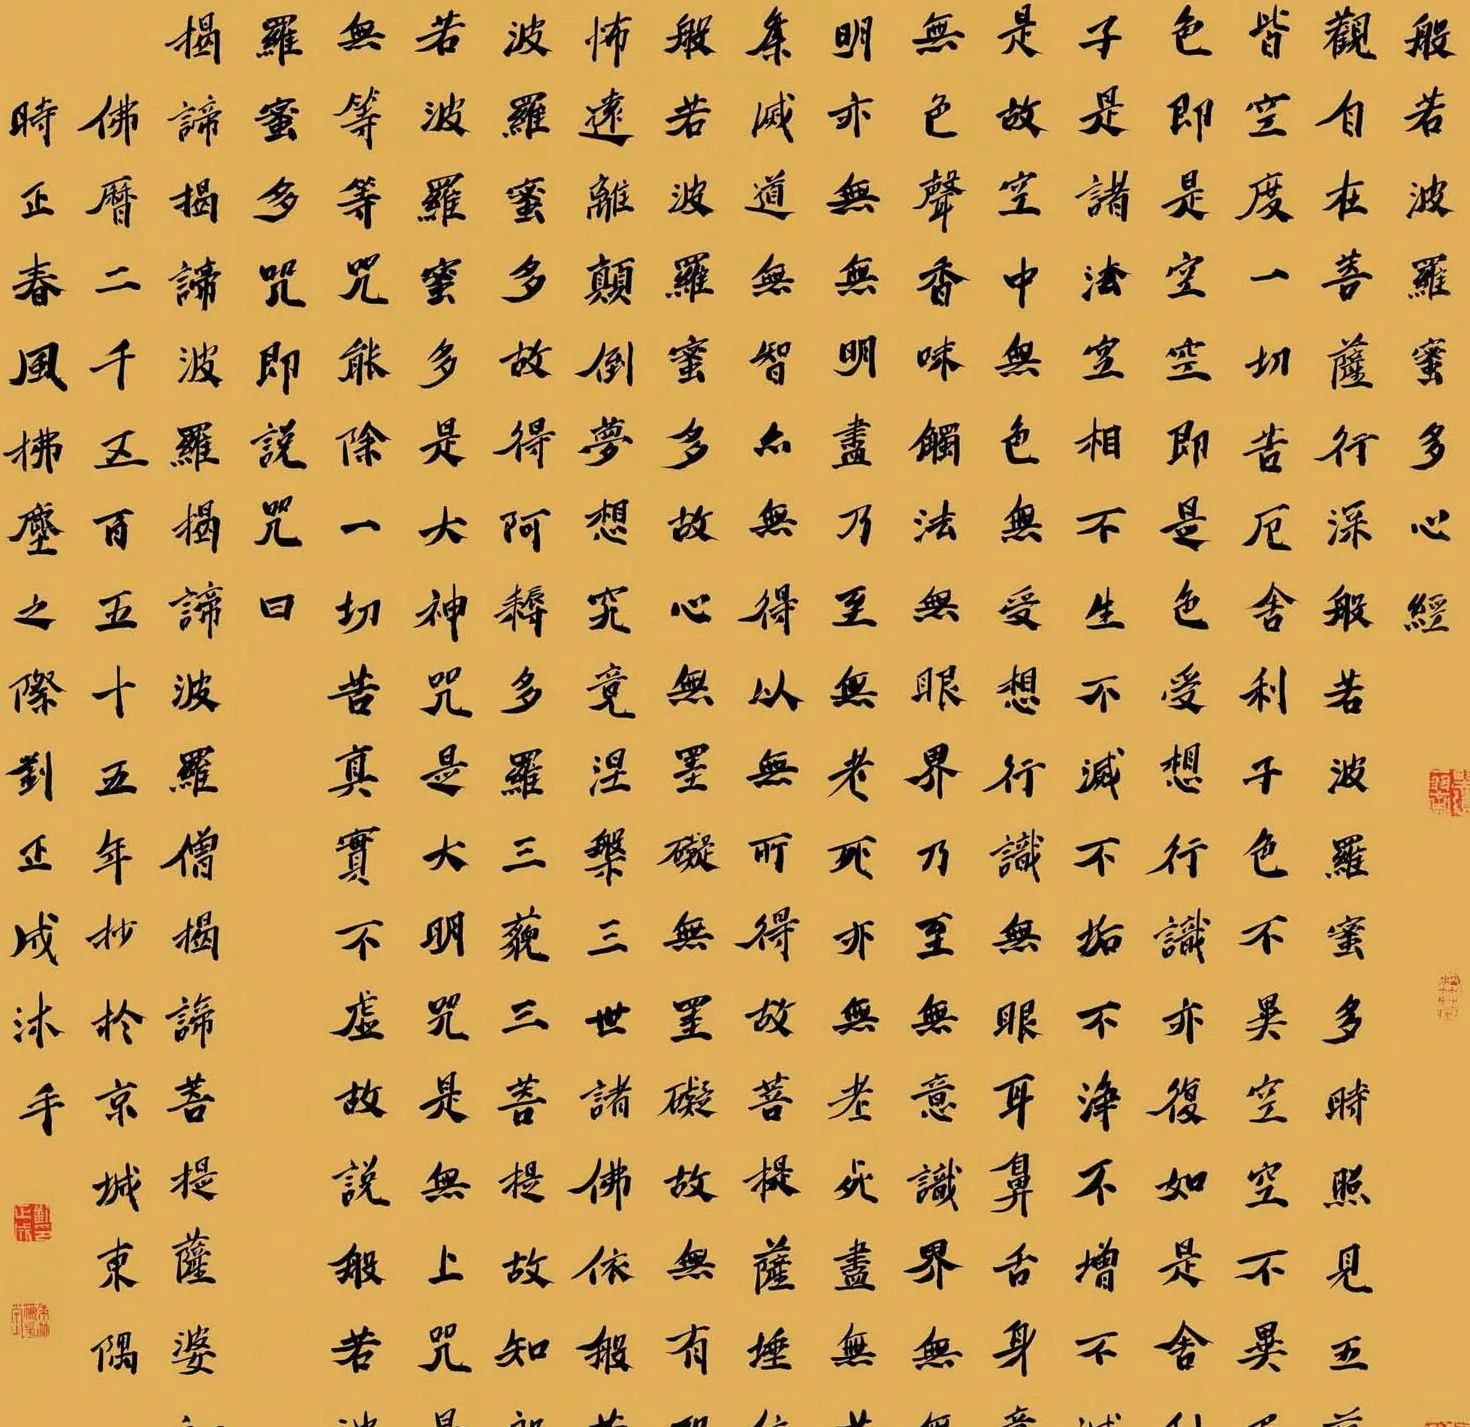 般若波羅蜜多心經
觀自在菩薩行深般若波羅蜜多時照見五
皆空度一切苦厄舍利子色不異空空不異
色即是空空即是色受想行識亦復如是舍
子是諸法空相不生不滅不垢不淨不增不
是故空中無色無受想行識無眼耳鼻舌身
無色聲香味觸法無眼界乃至無意識界無
明亦無無明盡乃至無老死亦無老死盡無
集滅道無智亦無得以無所得故菩提薩埵
般若波羅蜜多故心無罣礙無罣礙故無有
怖遠離顛倒夢想究竟涅槃三世諸佛依般
波羅蜜多故得阿耨多羅三藐三菩提故知
若波羅蜜多是大神咒是大明咒是無上咒
無等等咒能除一切苦真實不虛故說般若
羅蜜多咒即說咒曰
揭諦揭諦波羅揭諦波羅僧揭諦菩提薩婆
佛曆二千五百五十五年抄於京城東隅
時正春風拂塵之際劉正成沐手